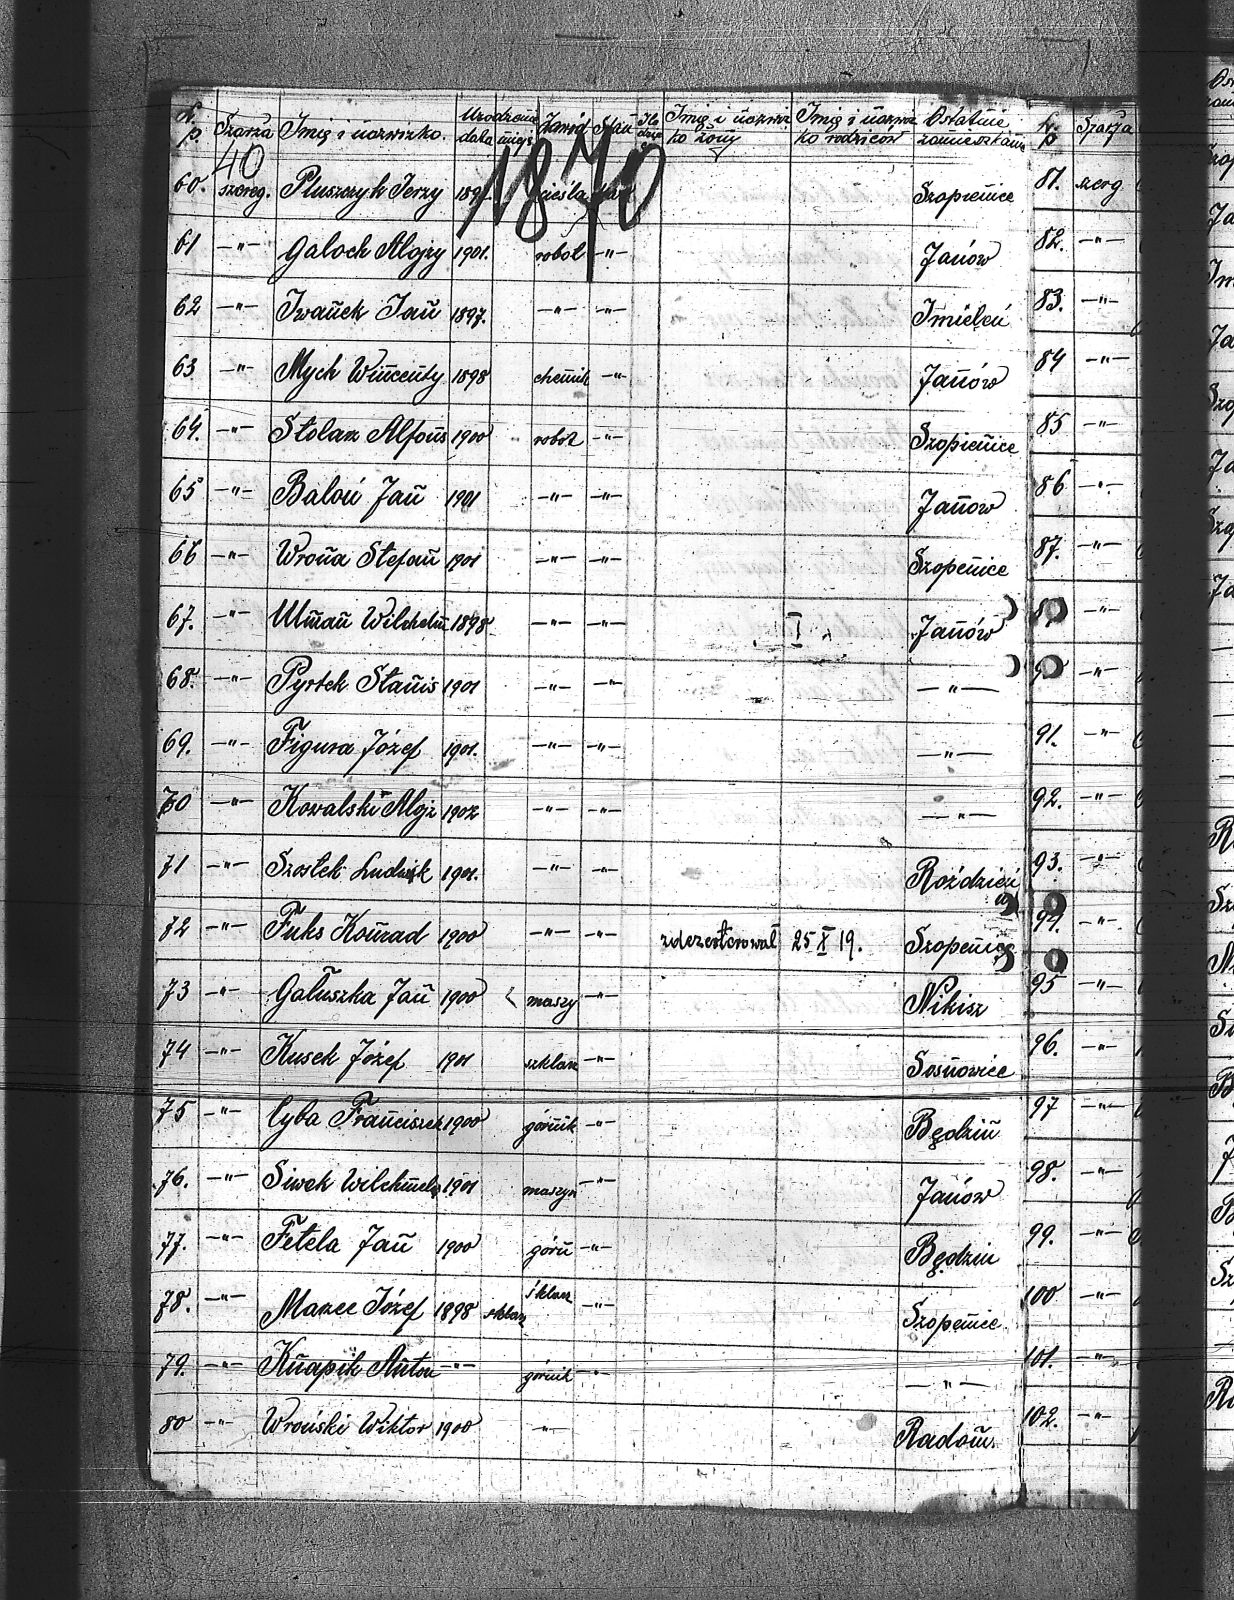 L. p. Szarża Imię i nazwizko. Urodzenia data miejs. Zawód Stan Ilo dzie Imię i nazwiz ko żony Imię i nazwiz ko rodziców Ostatnie zamieszkanie L. p Szarża
40 1870
60. szereg. Pluszczyk Jerzy cieśla Szopienice 81. szerg
61 —"— Galoch Alojzy 1901. robot —"— Janów 82. —"—
62 —"— Iwanek Jan 1897. —"— —"— Imieleń 83. —"—
63 —"— Mych Wincenty 1898 chemik —"— Janów 84 —"—
64. —"— Stolarz Alfons 1900 robot —"— Szopienice 85 —"—
65 —"— Baloń Jan 1901 —"— —"— Janow 86 —"—
66 —"— Wrona Stefan 1901 —"— —"— Szopenice 87. —"—
67. —"— Ulman Wilchelm 1898 —"— —"— I Janów —"—
68. —"— Pyrtek Stanis 1901 —"— —"— —"— —"—
69. —"— Figura Józef 1901. —"— —"— —"— 91. —"—
70 —"— Kowalski Alojz 1902 —"— —"— —"— 92. —"—
71 —"— Szostek Ludwik 1901. —"— —"— Roździeń 93. —"—
72 —"— Fuks Konrad 1900 —"— —"— zdezerterował 25 X 19. Szopenice 94. —"—
73 —"— Gałuszka Jan 1900 maszy —"— Nikisz 95 —"—
74 —"— Kusek Józef 1901 szklarz —"— Sosnowice 96. —"—
75 —"— Cyba Franciszek 1900 górnik —"— Będzin 97 —"—
76. —"— Siwek Wilchmelm 1901 maszyn —"— Janów 98. —"—
77. —"— Fetela Jan 1900 górn —"— Będzin 99. —"—
78. —"— Marzec Józef 1898 szklarz szklarz —"— Szopenice. 100 —"—
79. —"— Knapik Anton —"— górnik —"— —"— 101. —"—
80 —"— Wroński Wiktor 1900 —"— Radom. 102. —"—